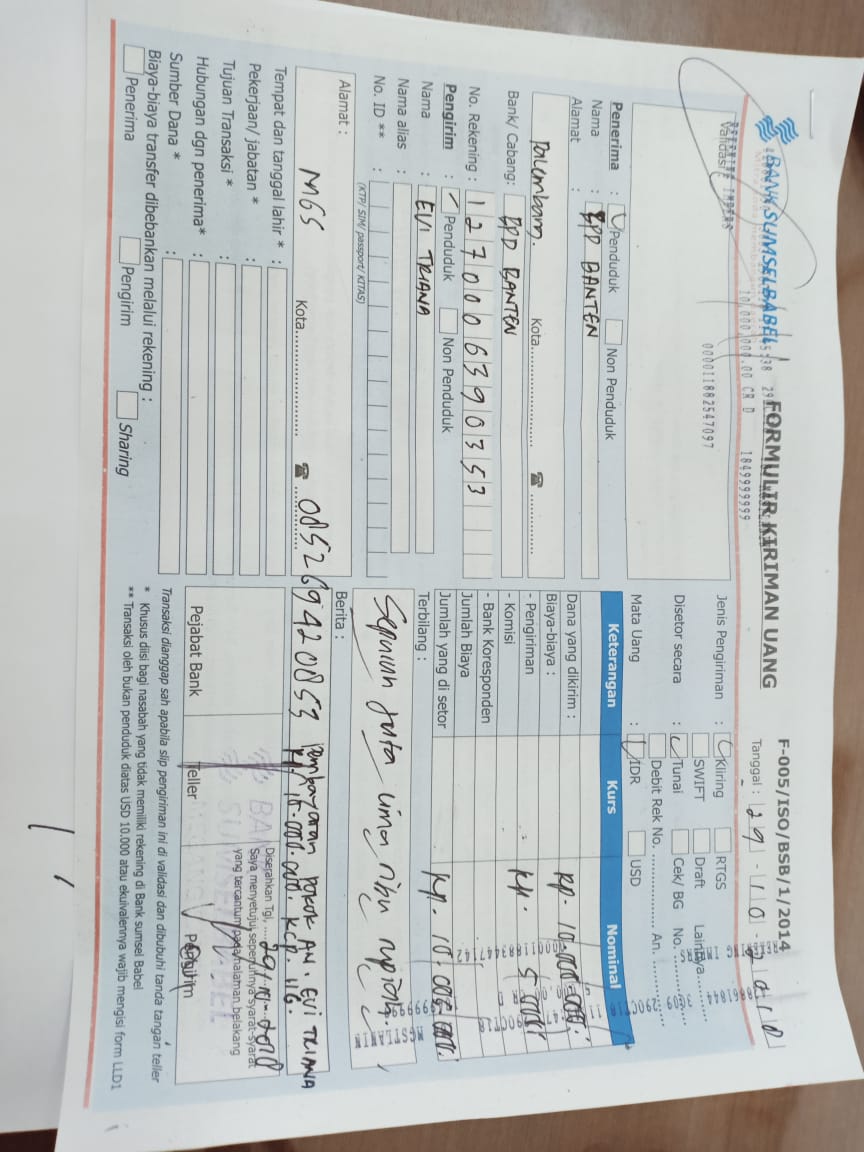 BANK SUMSELBABEL
FORMULIR KIRIMAN UANG
F-005/ISO/BSB/1/2014
Tanggal : 29-10-2018
Validasi
10,000,000.00 CR D 18499999999
000011882547097
Penerima : Penduduk Non Penduduk
Nama : BPD BANTEN
Alamat :
Palembang. Kota
Bank/ Cabang: BPD BANTEN
No. Rekening : 1270006390353
Pengirim : Penduduk Non Penduduk
Nama : EVI TRIANA
Nama alias :
No. ID ** :
(KTP/ SIM/ passport/ KITAS)
Alamat :
MGS Kota 085269420853
Tempat dan tanggal lahir * :
Pekerjaan/ jabatan * :
Tujuan Transaksi * :
Hubungan dgn penerima* :
Sumber Dana * :
Biaya-biaya transfer dibebankan melalui rekening :
Penerima Pengirim Sharing
Jenis Pengiriman : Kliring RTGS Lainnya
SWIFT Draft
Disetor secara : Tunai Cek/ BG No.
Debit Rek No. An.
Mata Uang : IDR USD
Keterangan Kurs Nominal
Dana yang dikirim : Rp. 10.000.000.
Biaya-biaya :
- Pengiriman Rp. 5.000
- Komisi
- Bank Koresponden
Jumlah Biaya
Jumlah yang di setor Rp. 10.005.000.
Terbilang :
Sepuluh juta lima ribu rupiah.
Berita :
Pembayaran pokok AN. EVI TRIANA
Rp. 10.000.000. KCP. 116.
Diserahkan Tgl, 29-10-2018
Saya menyetujui sepenuhnya syarat-syarat
yang tercantum pada halaman belakang
Pejabat Bank Teller Pengirim
Transaksi dianggap sah apabila slip pengiriman ini di validasi dan dibubuhi tanda tangan teller
* Khusus diisi bagi nasabah yang tidak memiliki rekening di Bank sumsel Babel
** Transaksi oleh bukan penduduk diatas USD 10.000 atau ekuivalennya wajib mengisi form LLD1